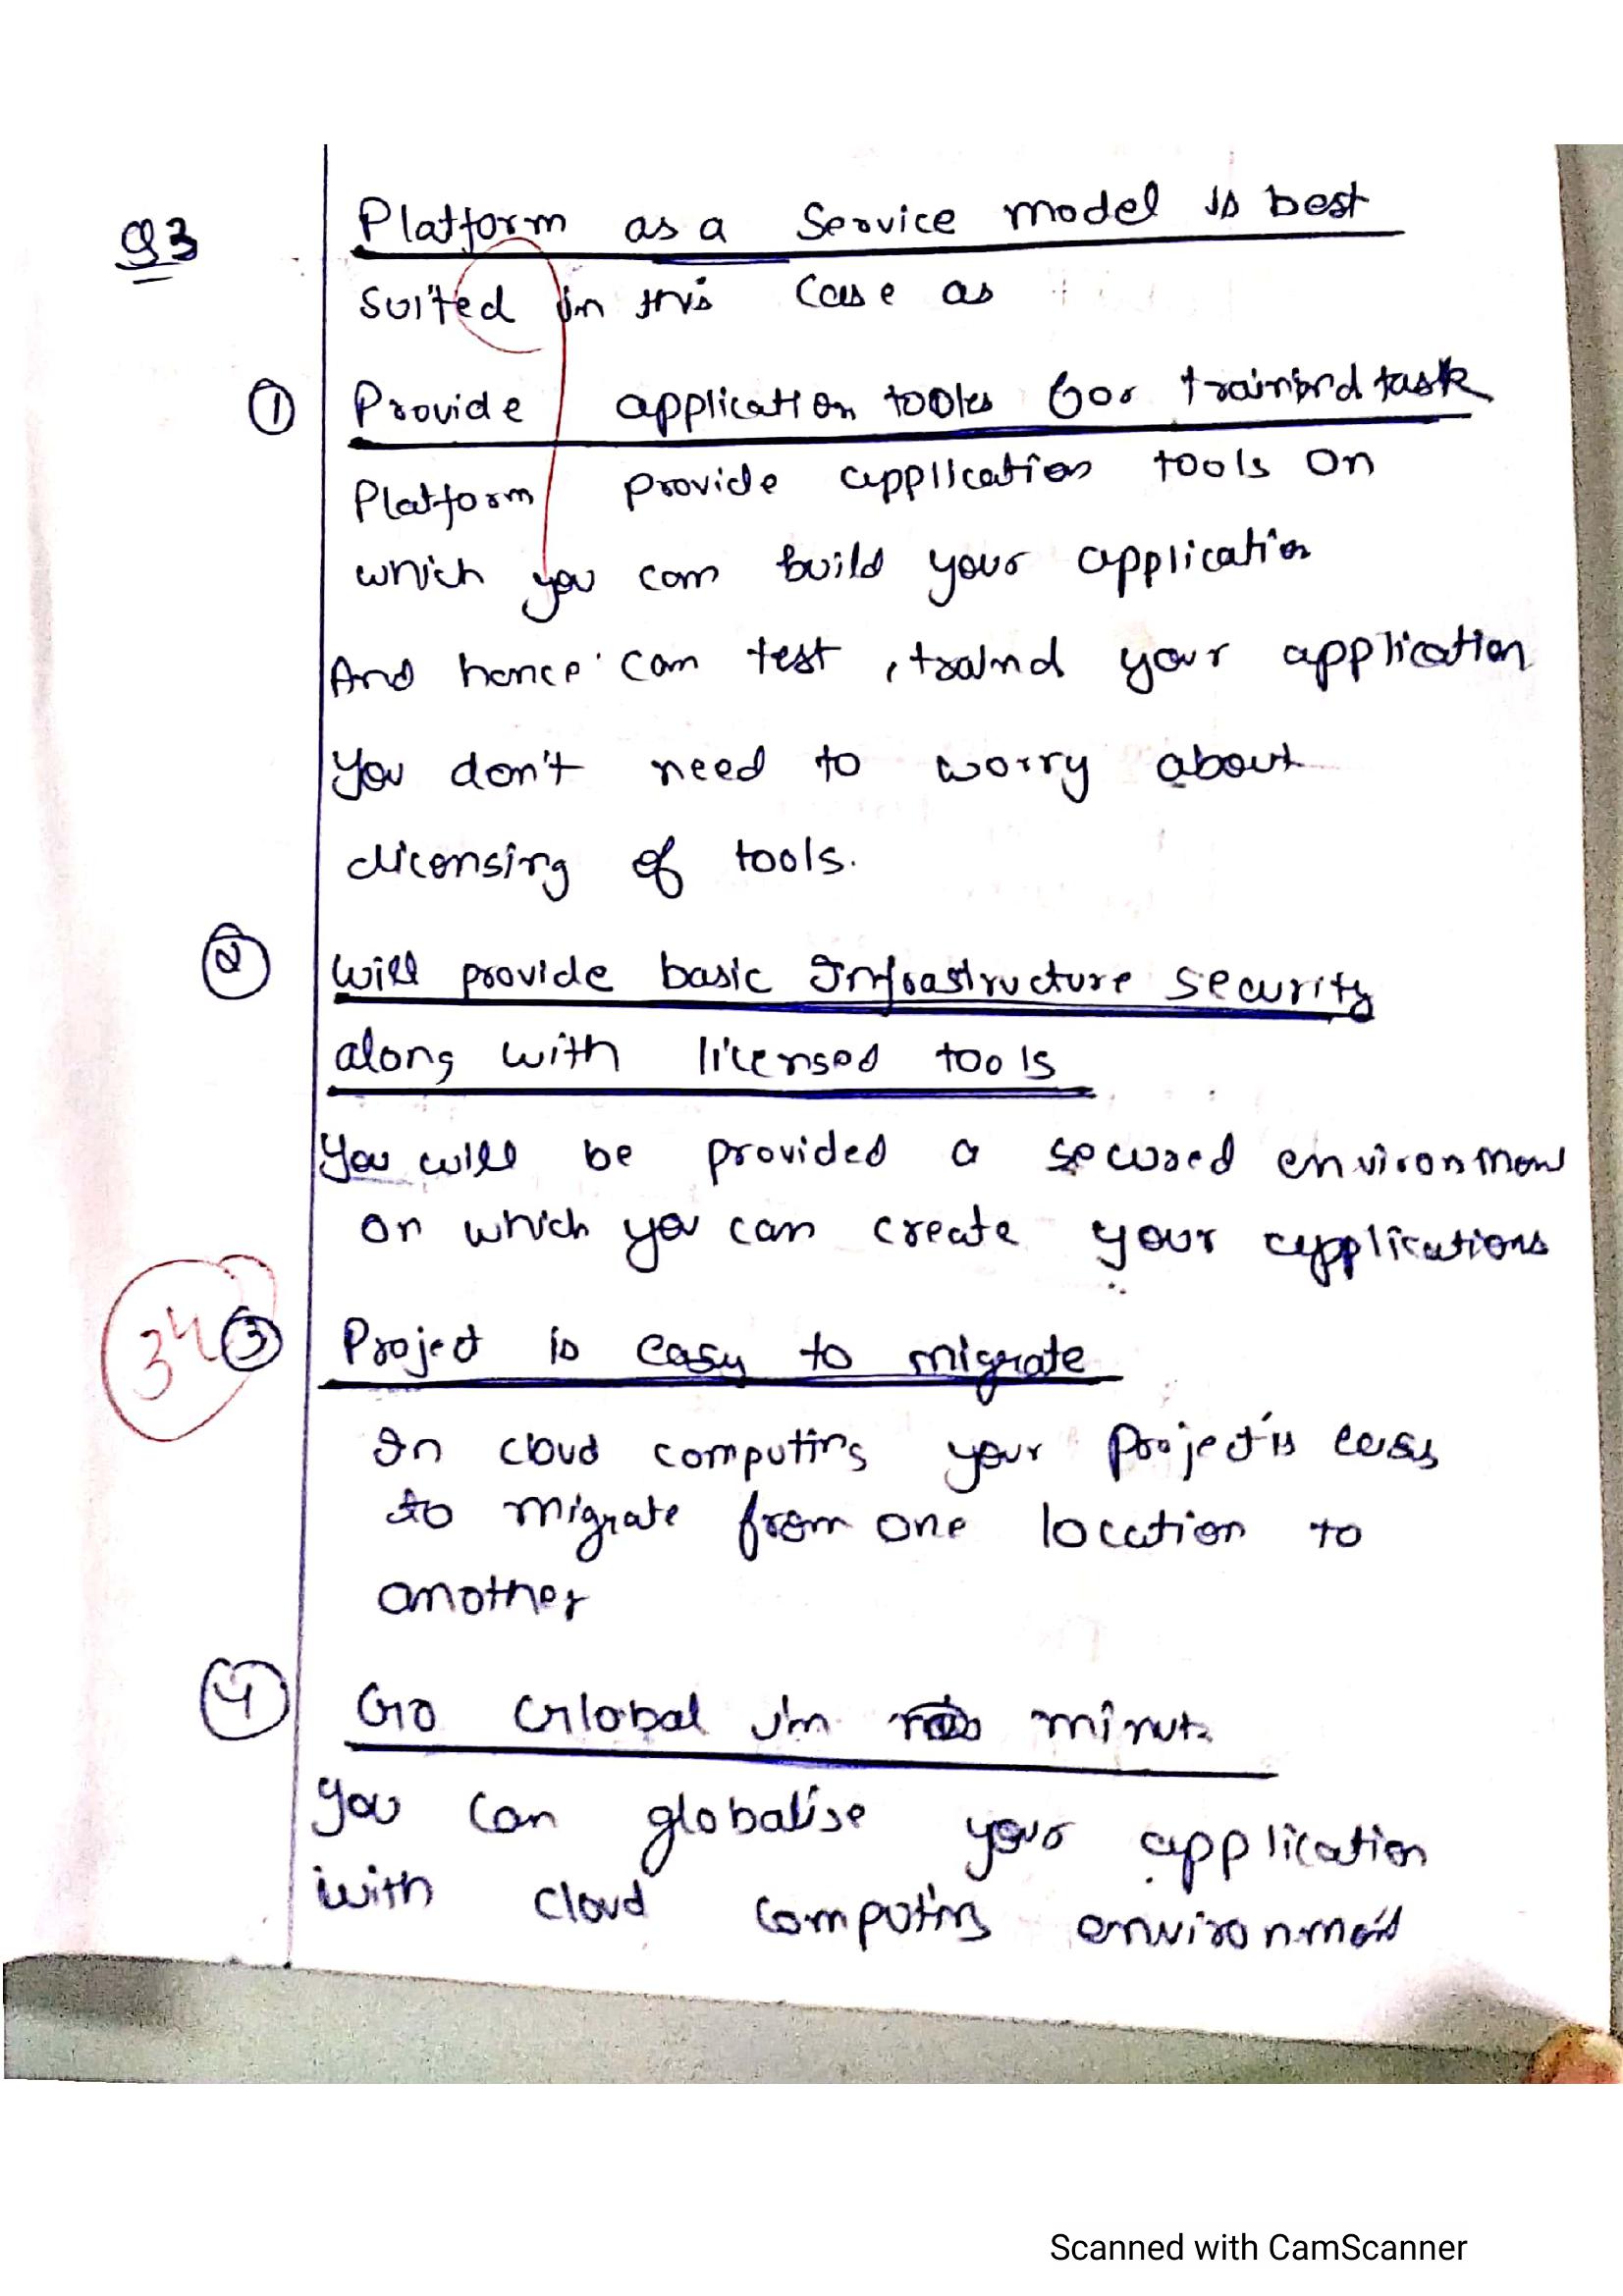 Q3 Platform as a Service model is best
suited in this case as
① Provide application tools for trainind task
Platform provide application tools on
which you can build your application
And hence can test , traind your application
You don't need to worry about
licensing of tools.
② Will provide basic Infrastructure security
along with licensed tools
You will be provided a secured environment
on which you can create your applications
34 ③ Project is easy to migrate
In cloud computing your project is easy
to migrate from one location to
another
④ Go Global in minuts
You can globalise your application
with cloud computing environment
Scanned with CamScanner